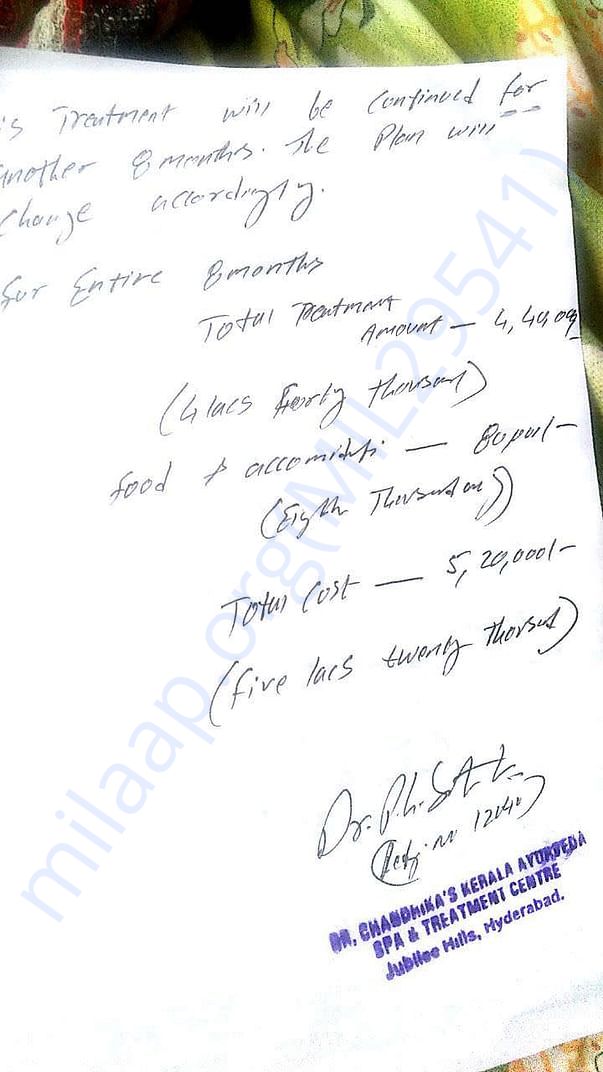 is Treatment will be continued for
another 8 months. The Plan will
change accordingly.
for Entire 8 months
Total Treatment
Amount — 4,40,00
(4 lacs Forty thousand)
food & — 80
(Eigth Thousand)
Total Cost — 5,20,000/-
(five lacs twenty thousand)
Dr. Ph.
(Reg. no
DR. CHANDHIKA'S KERALA AYURVEDA
SPA & TREATMENT CENTRE
Jubilee Hills, Hyderabad.
milaap.org(MIL29541)